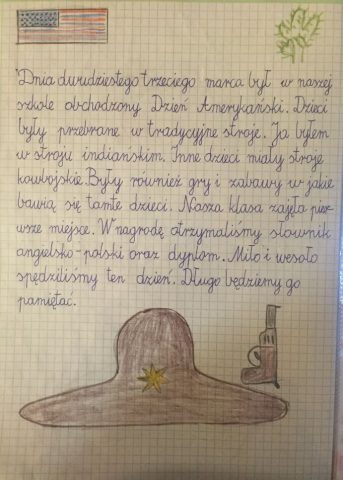 Dnia dwudziestego trzeciego marca był w naszej
szkole obchodzony Dzień Amerykański. Dzieci
były przebrane w tradycyjne stroje. Ja byłem
w stroju indianskim. Inne dzieci miały stroje
kowbojskie. Były również gry i zabawy w jakie
bawią się tamte dzieci. Nasza klasa zajęła pier-
wsze miejsce. W nagrodę otrzymaliśmy słownik
angielsko-polski oraz dyplom. Miło i wesoło
spędziliśmy ten dzień. Długo będziemy go
pamiętać.